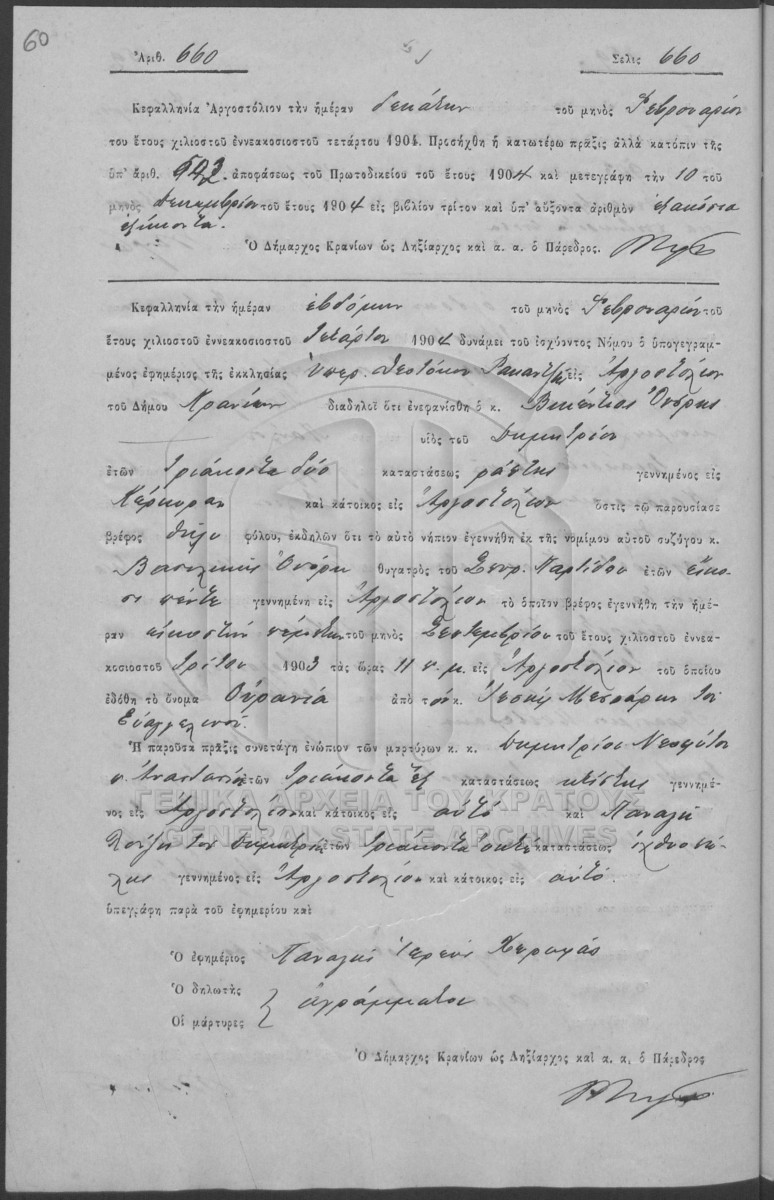 60
Ἀριθ. 660
Σελις 660
Κεφαλληνία Ἀργοστόλιον τὴν ἡμέραν δεκάτην τοῦ μηνὸς Φεβρουαρίου
του ἔτους χιλιοστοῦ ἐννεακοσιοστοῦ τετάρτου 1904. Προσήχθη ἡ κατωτέρω πρᾶξις ἀλλὰ κατόπιν τῆς
ὑπ' ἀριθ. 542 ἀποφάσεως τοῦ Πρωτοδικείου τοῦ ἔτους 1904 καὶ μετεγράφη τὴν 10 τοῦ
μηνὸς Δεκεμβρίου τοῦ ἔτους 1904 εἰς βιβλίον τρίτον καὶ ὑπ' αὔξοντα ἀριθμὸν ἑξακόσια
ἑξήκοντα.
Ὁ Δήμαρχος Κρανίων ὡς Ληξίαρχος καὶ α. α. ὁ Πάρεδρος.
Κεφαλληνία τὴν ἡμέραν ἑβδόμην τοῦ μηνὸς Φεβρουαρίου τοῦ
ἔτους χιλιοστοῦ ἐννεακοσιοστοῦ Τετάρτου 1904 δυνάμει τοῦ ἰσχύοντος Νόμου ὁ ὑπογεγραμ-
μένος ἐφημέριος τῆς ἐκκλησίας Ὑπερ. Θεοτόκου εἰς Ἀργοστόλιον
τοῦ Δήμου Κρανίων διαδηλοῖ ὅτι ἐνεφανίσθη ὁ κ. Βικέντιος
υἱὸς τοῦ Δημητρίου
ἐτῶν τριάκοντα δύο καταστάσεως ράπτης γεννημένος εἰς
Κέρκυραν καὶ κάτοικος εἰς Ἀργοστόλιον ὅστις τῷ παρουσίασε
βρέφος θῆλυ φύλου, ἐκδηλῶν ὅτι τὸ αὐτὸ νήπιον ἐγεννήθη ἐκ τῆς νομίμου αὐτοῦ συζύγου κ.
Βασιλικῆς θυγατρὸς τοῦ Σπυρ. ἐτῶν εἴκο-
σι πέντε γεννημένη εἰς Ἀργοστόλιον τὸ ὁποῖον βρέφος ἐγεννήθη τὴν ἡμέ-
ραν εἰκοστὴν πέμπτην τοῦ μηνὸς Σεπτεμβρίου τοῦ ἔτους χιλιοστοῦ ἐννεα-
κοσιοστοῦ Τρίτου 1903 τὰς ὥρας 11 εἰς Ἀργοστόλιον τοῦ ὁποίου
ἐδόθη τὸ ὄνομα Οὐρανία ἀπὸ τὸν κ. τοῦ
Εὐαγγελινοῦ.
Ἡ παροῦσα πρᾶξις συνετάγη ἐνώπιον τῶν μαρτύρων κ. κ. Δημητρίου Νεοφύτου
π. Ἀναστασίου ἐτῶν τριάκοντα ἓξ καταστάσεως κτίστης γεννημέ-
νος εἰς Ἀργοστόλιον καὶ κάτοικος εἰς αὐτό καὶ Παναγῆ
τοῦ Δημητρίου ἐτῶν τριάκοντα ὀκτὼ καταστάσεως ἰχθυοπώ-
λης γεννημένος εἰς Ἀργοστόλιον καὶ κάτοικος εἰς αὐτό.
ὑπεγράφη παρὰ τοῦ ἐφημερίου καὶ
Ὁ ἐφημέριος Παναγῆς Ἱερεὺς
Ὁ δηλωτὴς
Οἱ μάρτυρες } ἀγράμματοι
Ὁ Δήμαρχος Κρανίων ὡς Ληξίαρχος καὶ α. α. ὁ Πάρεδρος
ΓΕΝΙΚΑ ΑΡΧΕΙΑ ΤΟΥ ΚΡΑΤΟΥΣ
GENERAL STATE ARCHIVES